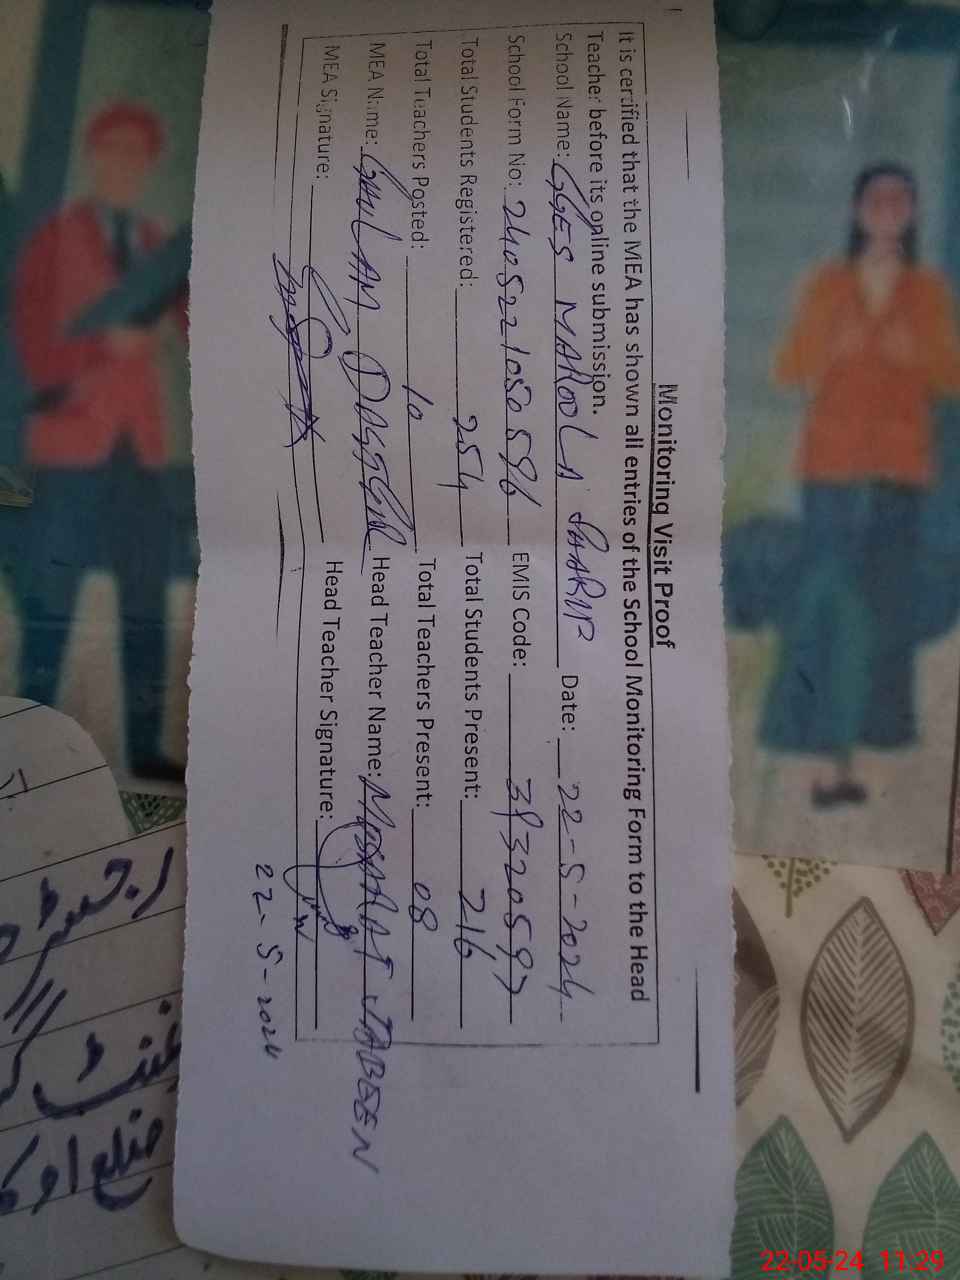 Monitoring Visit Proof
It is certified that the MEA has shown all entries of the School Monitoring Form to the Head
Teacher before its online submission.
School Name: GGES MAROOLA SHARIF Date: 22-5-2024
School Form No: 2405221050596 EMIS Code: 39320597
Total Students Registered: 254 Total Students Present: 216
Total Teachers Posted: 10 Total Teachers Present: 08
MEA Name: GHULAM DASTGIR Head Teacher Name: MUSARAT JABEEN
MEA Signature: Head Teacher Signature:
22-5-2024
ضلع اوکا
22-05-24 11:29